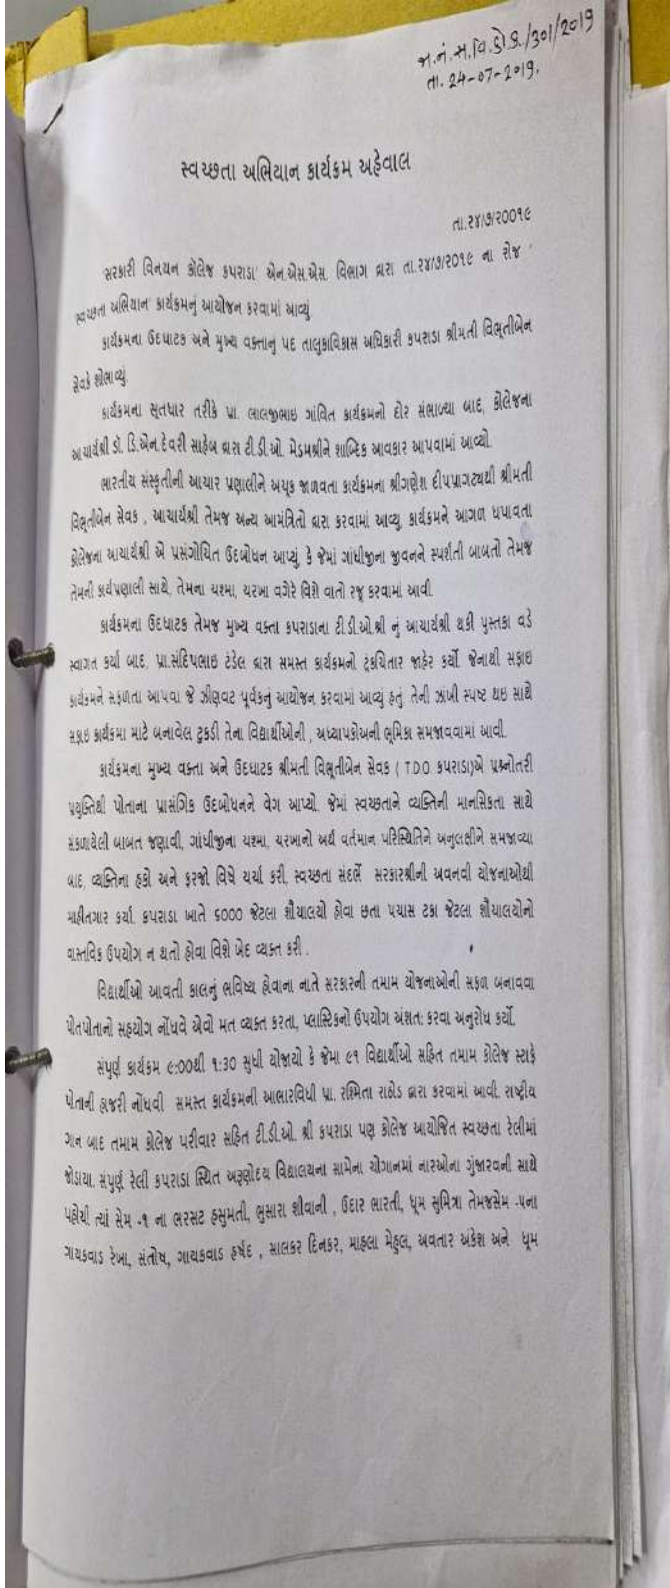 જા.નં.સ.વિ.કો.ક./301/2019
તા. 24-07-2019.
સ્વચ્છતા અભિયાન કાર્યક્રમ અહેવાલ
તા.૨૪/૭/૨૦૦૧૯
'સરકારી વિનયન કૉલેજ કપરાડા' એન.એસ.એસ. વિભાગ દ્વારા તા.૨૪/૭/૨૦૧૯ ના રોજ '
સ્વચ્છતા અભિયાન' કાર્યક્રમનું આયોજન કરવામાં આવ્યું
કાર્યક્રમના ઉદઘાટક અને મુખ્ય વક્તાનું પદ તાલુકાવિકાસ અધિકારી કપરાડા શ્રીમતી વિભૂતીબેન
સેવકે શોભાવ્યું.
કાર્યક્રમના સૂત્રધાર તરીકે પ્રા. લાલજીભાઇ ગાંવિત કાર્યક્રમનો દોર સંભાળ્યા બાદ, કોલેજના
આચાર્યશ્રી ડૉ. ડિ.એન.દેવરી સાહેબ દ્વારા ટી.ડી.ઓ. મેડમશ્રીને શાબ્દિક આવકાર આપવામાં આવ્યો.
ભારતીય સંસ્કૃતીની આચાર પ્રણાલીને અચૂક જાળવતા કાર્યક્રમના શ્રીગણેશ દીપપ્રાગટ્યથી શ્રીમતી
વિભૂતીબેન સેવક , આચાર્યશ્રી તેમજ અન્ય આમંત્રિતો દ્વારા કરવામાં આવ્યુ, કાર્યક્રમને આગળ ધપાવતા
કોલેજના આચાર્યશ્રી એ પ્રસંગોચિત ઉદબોધન આપ્યું, કે જેમાં ગાંધીજીના જીવનને સ્પર્શતી બાબતો તેમજ
તેમની કાર્યપ્રણાલી સાથે, તેમના ચશ્મા, ચરખા વગેરે વિશે વાતો રજૂ કરવામાં આવી.
કાર્યક્રમના ઉદઘાટક તેમજ મુખ્ય વક્તા કપરાડાના ટી.ડી.ઓ.શ્રી નું આચાર્યશ્રી થકી પુસ્તકા વડે
સ્વાગત કર્યા બાદ, પ્રા.સંદિપભાઇ ટંડેલ દ્વારા સમસ્ત કાર્યક્રમનો ટૂંકચિતાર જાહેર કર્યો. જેનાથી સફાઇ
કાર્યક્રમને સફળતા આપવા જે ઝીણવટ પૂર્વકનું આયોજન કરવામાં આવ્યું હતું, તેની ઝાંખી સ્પષ્ટ થઇ સાથે
સફાઇ કાર્યક્રમા માટે બનાવેલ ટુકડી તેના વિદ્યાર્થીઓની , અધ્યાપકોઅની ભૂમિકા સમજાવવામાં આવી.
કાર્યક્રમના મુખ્ય વક્તા અને ઉદઘાટક શ્રીમતી વિભૂતીબેન સેવક ( T.D.O કપરાડા)એ પ્રશ્નોતરી
પ્રયુક્તિથી પોતાના પ્રાસંગિક ઉદબોધનને વેગ આપ્યો. જેમાં સ્વચ્છતાને વ્યક્તિની માનસિકતા સાથે
સંકળાયેલી બાબત જણાવી, ગાંધીજીના ચશ્મા, ચરખાનો અર્થ વર્તમાન પરિસ્થિતિને અનુલક્ષીને સમજાવ્યા
બાદ, વ્યક્તિના હકો અને ફરજો વિષે ચર્ચા કરી, સ્વચ્છતા સંદર્ભે સરકારશ્રીની અવનવી યોજનાઓથી
માહીતગાર કર્યા. કપરાડા ખાતે ૬૦૦૦ જેટલા શૌચાલયો હોવા છતા પચાસ ટકા જેટલા શૌચાલયોનો
વાસ્તવિક ઉપયોગ ન થતો હોવા વિશે ખેદ વ્યક્ત કરી .
વિદ્યાર્થીઓ આવતી કાલનું ભવિષ્ય હોવાના નાતે સરકારની તમામ યોજનાઓની સફળ બનાવવા
પોતપોતાનો સહયોગ નોંધવે એવો મત વ્યક્ત કરતા, પ્લાસ્ટિકનો ઉપયોગ અંશત: કરવા અનુરોધ કર્યો.
સંપુર્ણ કાર્યક્રમ ૯:૦૦થી ૧:૩૦ સુધી યોજાયો કે જેમા ૯૧ વિદ્યાર્થીઓ સહિત તમામ કોલેજ સ્ટાફે
પોતાની હાજરી નોંધવી સમસ્ત કાર્યક્રમની આભારવિધી પ્રા. રશ્મિતા રાઠોડ દ્વારા કરવામાં આવી. રાષ્ટ્રીય
ગાન બાદ તમામ કોલેજ પરીવાર સહિત ટી.ડી.ઓ. શ્રી કપરાડા પણ કોલેજ આયોજિત સ્વચ્છતા રેલીમાં
જોડાયા. સંપુર્ણ રેલી કપરાડા સ્થિત અરૂણોદય વિદ્યાલયના સામેના ચોગાનમાં નારઓના ગુંજારવની સાથે
પહોચી ત્યાં સેમ -૧ ના ભરસટ હસુમતી, ભુસારા શીવાની , ઉદાર ભારતી, ધૂમ સુમિત્રા તેમજસેમ -૫ના
ગાયકવાડ રેખા, સંતોષ, ગાયકવાડ હર્ષદ , સાલકર દિનકર, માહલા મેહુલ, અવતાર અંકેશ અને ધૂમ